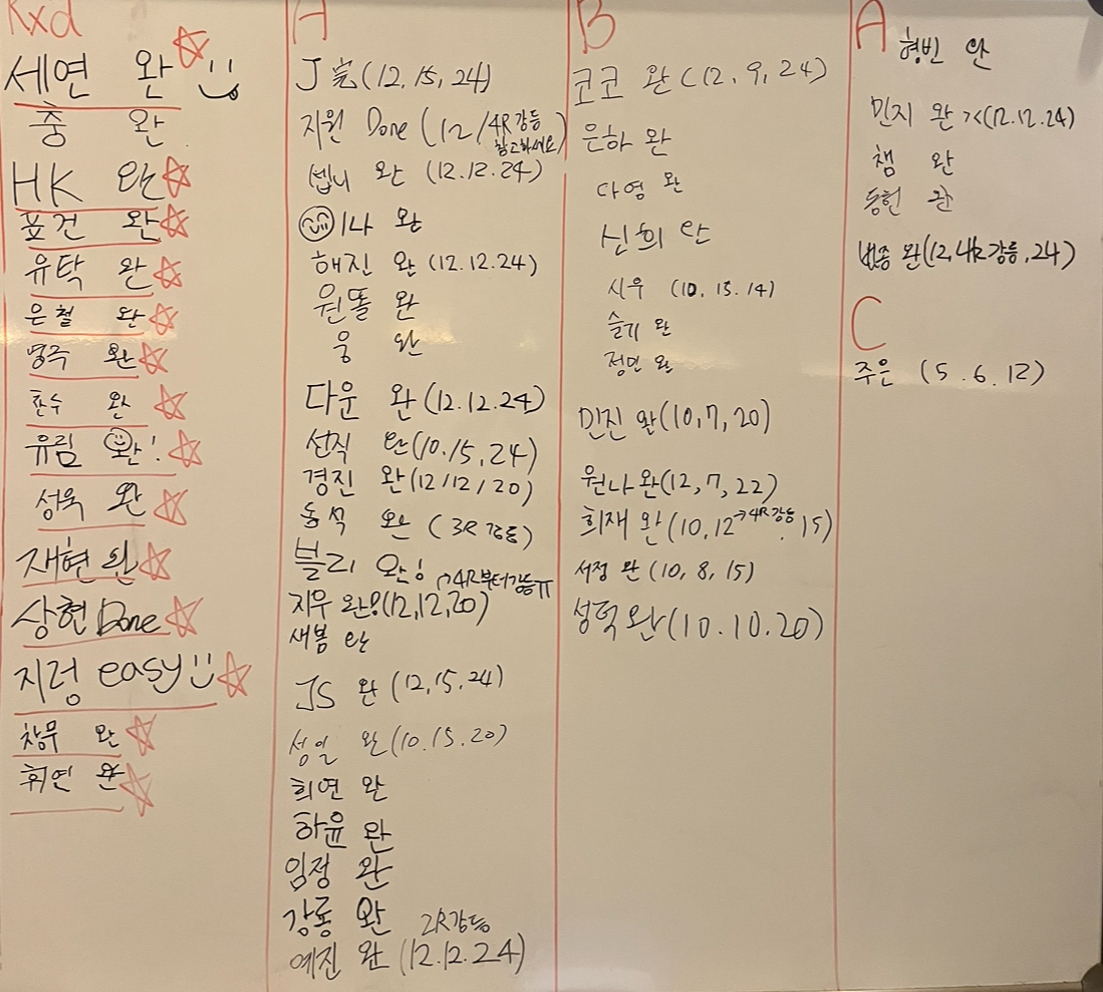 Rxd
세연 완
충 완
HK 완
표건 완
유탁 완
은철 완
명주 완
찬수 완
유림 완!
성욱 완
재현 완
상현 Done
지렁 easy
창무 완
휘연 완
A
J 完(12,15,24)
지원 Done (12/4R강등
참고하세요)
쎕니 완 (12.12.24)
나 완
해진 완 (12.12.24)
원똘 완
웅 완
다운 완 (12.12.24)
선직 완(10.15,24)
경진 완(12/12/20)
동석 완 (3R 강등)
블리 완!
→4R부터강등ㅠ
지우 완!(12,12,20)
새봄 완
JS 완 (12,15.24)
성일 완(10.15.20)
희연 완
하윤 완
임정 완
강룡 완 2R강등
예진 완 (12.12.24)
B
코코 완 (12,9,24)
은하 완
다영 완
신희 완
시우 (10.15.14)
슬기 완
정민 완
민진 완(10,7,20)
원나 완(12,7,22)
희재 완(10,12→4R강등,15)
서정 완 (10,8,15)
성혁 완(10.10.20)
A
형빈 완
민지 완 ><(12.12.24)
챔 완
동현 완
완(12,4R강등,24)
C
주은 (5.6.12)